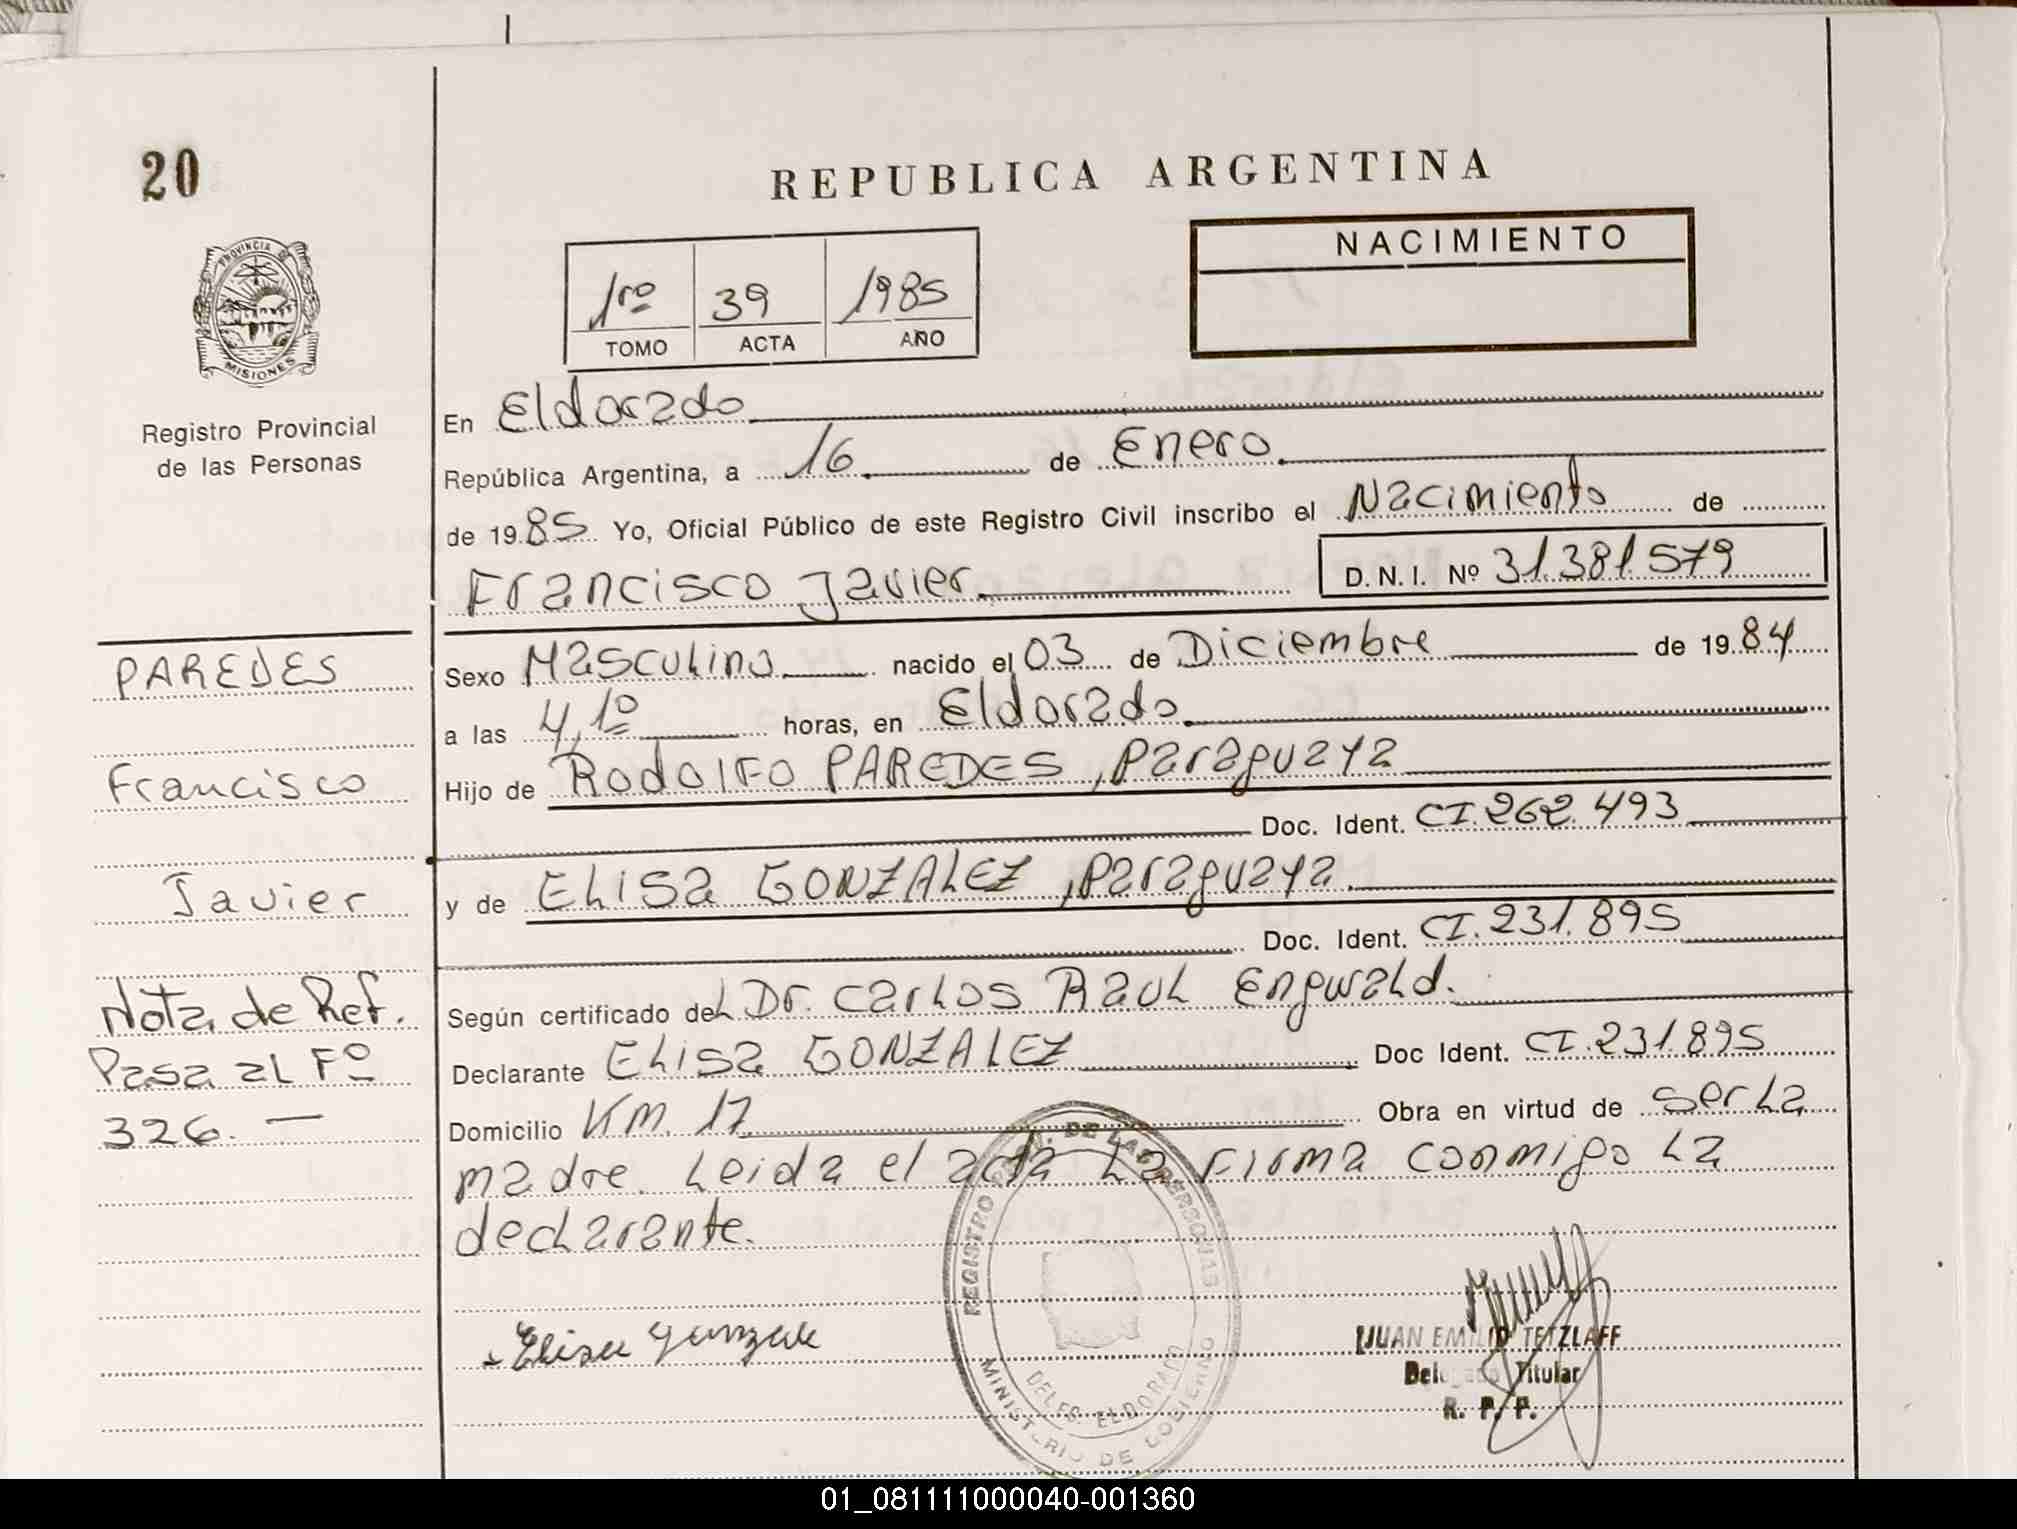 20
REPUBLICA ARGENTINA
PROVINCIA DE
MISIONES
Registro Provincial
de las Personas
1ro 39 1985
TOMO ACTA AÑO
NACIMIENTO
En Eldorado
República Argentina, a 16 de Enero
de 1985 Yo, Oficial Público de este Registro Civil inscribo el Nacimiento de
Francisco Javier D.N.I. Nº 31.381.579
Sexo Masculino nacido el 03 de Diciembre de 1984
a las 4,10 horas, en Eldorado
Hijo de Rodolfo PAREDES, Paraguaya
Doc. Ident. CI.262.493
y de ELISA GONZALEZ, Paraguaya
Doc. Ident. CI.231.895
Según certificado del Dr. Carlos Raul Engwald.
Declarante ELISA GONZALEZ Doc Ident. CI.231.895
Domicilio KM. 17 Obra en virtud de ser La
madre. Leida el acta La Firma conmigo La
declarante.
PAREDES
Francisco
Javier
Nota de Ref.
Pasa al Fº
326. —
Elisa Gonzale
REGISTRO DE LAS PERSONAS
DELEG. ELDORADO
MINISTERIO DE GOBIERNO
JUAN EMILIO TETZLAFF
Delegado Titular
R. P. P.
01_081111000040-001360